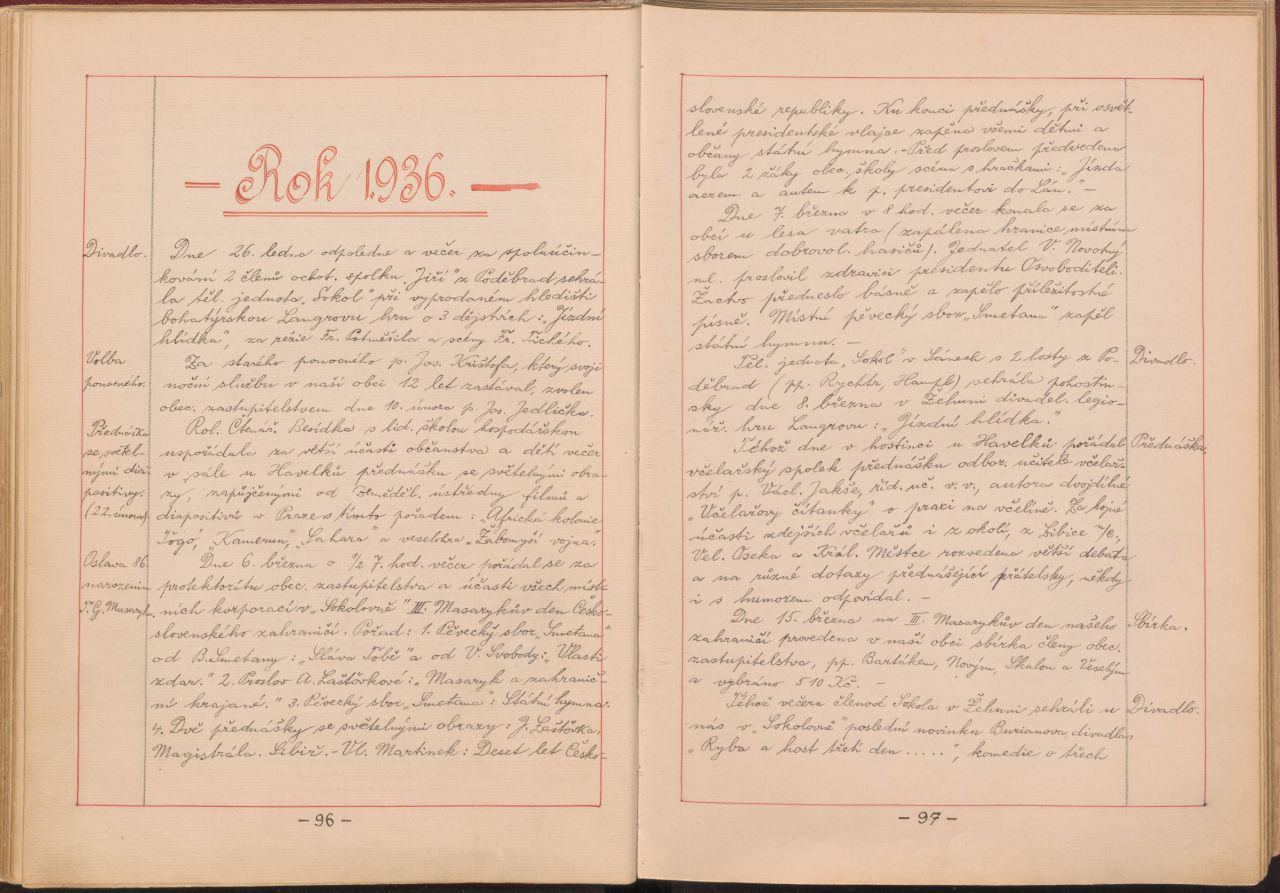 — Rok 1936. —
Divadlo.
Dne 26. ledna odpoledne a večer za spoluúčin-
kování 2 členů ochot. spolku „Jiří" z Poděbrad sehrá-
la těl. jednota „Sokol" při vyprodaném hledišti
bohatýrskou Langrovu hru o 3 dějstvích: „Jízdní
hlídka", za režie Fr. Potměšila a scény Fr. Tichého.
Volba
ponocného.
Za starého ponocného p. Jos. Krištofa, který svoji
noční službu v naší obci 12 let zastával, zvolen
obec. zastupitelstvem dne 10. února p. Jos. Jedlička.
Přednáška
se světel-
nými dia-
positivy.
(22. února).
Rol. Čtenář. Besídka s lid. školou hospodářskou
uspořádala za větší účasti občanstva a dětí večer
v sále u Havelků přednášku se světelnými obra-
zy, zapůjčenými od Zeměděl. ústředny filmů a
diapositivů v Praze s tímto pořadem: „Africká kolonie
Togo", „Kamerun, „Sahara" a veselohra „Žabomyší vojna.
Oslava 86.
narozenin
T. G. Masaryka.
Dne 6. března o 1/2 7. hod. večer pořádal se za
protektorátu obec. zastupitelstva a účasti všech míst-
ních korporací v „Sokolovně" III. Masarykův den Česko-
slovenského zahraničí. Pořad: 1. Pěvecký sbor „Smetana"
od B. Smetany: „Sláva Tobě" a od V. Svobody: „Vlasti
zdar." 2. Proslov A. Laštovkové: „Masaryk a zahranič-
ní krajané." 3. Pěvecký sbor „Smetana": Státní hymna.
4. Dvě přednášky se světelnými obrazy: J. Laštovka,
Magistrála. Sibiř. - Vl. Martinek: Deset let Česko-
- 96 -
slovenské republiky. Ku konci přednášky, při osvět-
lené presidentské vlajce zapěna všemi dětmi a
občany státní hymna. - Před proslovem předvedena
byla 2 žáky obec. školy scéna s hračkami: „Jízda
aerem a autem k p. presidentovi do Lán." -
Dne 7. března v 8 hod. večer konala se za
obcí u lesa vatra (zapálena hranice místním
sborem dobrovol. hasičů). Jednatel V. Novotný
ml. proslovil zdravici presidentu Osvoboditeli.
Žactvo předneslo básně a zapělo příležitostné
písně. Místní pěvecký sbor „Smetana" zapěl
státní hymnu. -
Divadlo.
Těl. jednota „Sokol" v Sánech s 2 hosty z Po-
děbrad (pp. Rychtr, Hampl) sehrála pohostin-
sky dne 8. března v Žehuni divadel. legio-
nář. hru Langrovu: „Jízdní hlídka".
Přednáška.
Téhož dne v hostinci u Havelků pořádal
včelařský spolek přednášku odbor. učitele včelař-
ství p. Václ. Jakše, říd. uč. v.v., autora dvojdílné
„Včelařovy čítanky" o praxi na včelíně. Za hojné
účasti zdejších včelařů i z okolí, z Libice n/C.,
Vel. Oseka a Král. Městce rozvedena větší debata
a na různé dotazy přednášející přátelsky, někdy
i s humorem odpovídal. -
Sbírka.
Dne 15. března na III. Masarykův den našeho
zahraničí provedena v naší obci sbírka členy obec.
zastupitelstva, pp. Bartákem, Novým, Skalou a Veselým
a vybráno 510 Kč. -
Divadlo.
Téhož večera členové Sokola v Žehuni sehráli u
nás v „Sokolovně" poslední novinku Burianova divadla:
„Ryba a host třetí den .....", komedie o třech
- 97 -